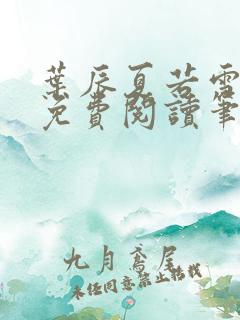 葉辰夏若雪
免費閱讀筆
九月鳶尾
未經同意禁止轉載